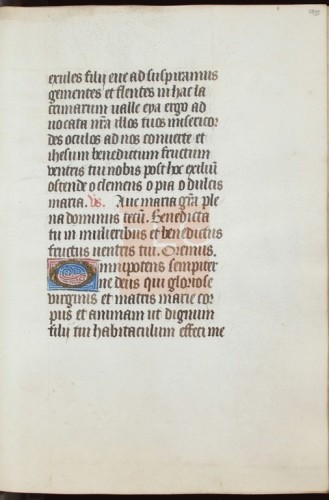 exules filij eue ad suspiramus
gementes et flentes in hac la
crimarum ualle eya ergo ad
uocata nr̃a illos tuos misericor
des oculos ad nos conuerte et
ihesum benedictum fructum
ventris tui nobis post hoc exiliũ
ostende o clemens o pia o dulcis
maria. v̄s. Aue maria gr̃a ple
na dominus tecũ. Benedicta
tu in mulieribus et benedictus
fructus uentris tui. Oremus.
Omnipotens sempiter
ne deus qui gloriose
virginis et matris marie cor
pus et animam ut dignum
filij tui habitaculum effici me